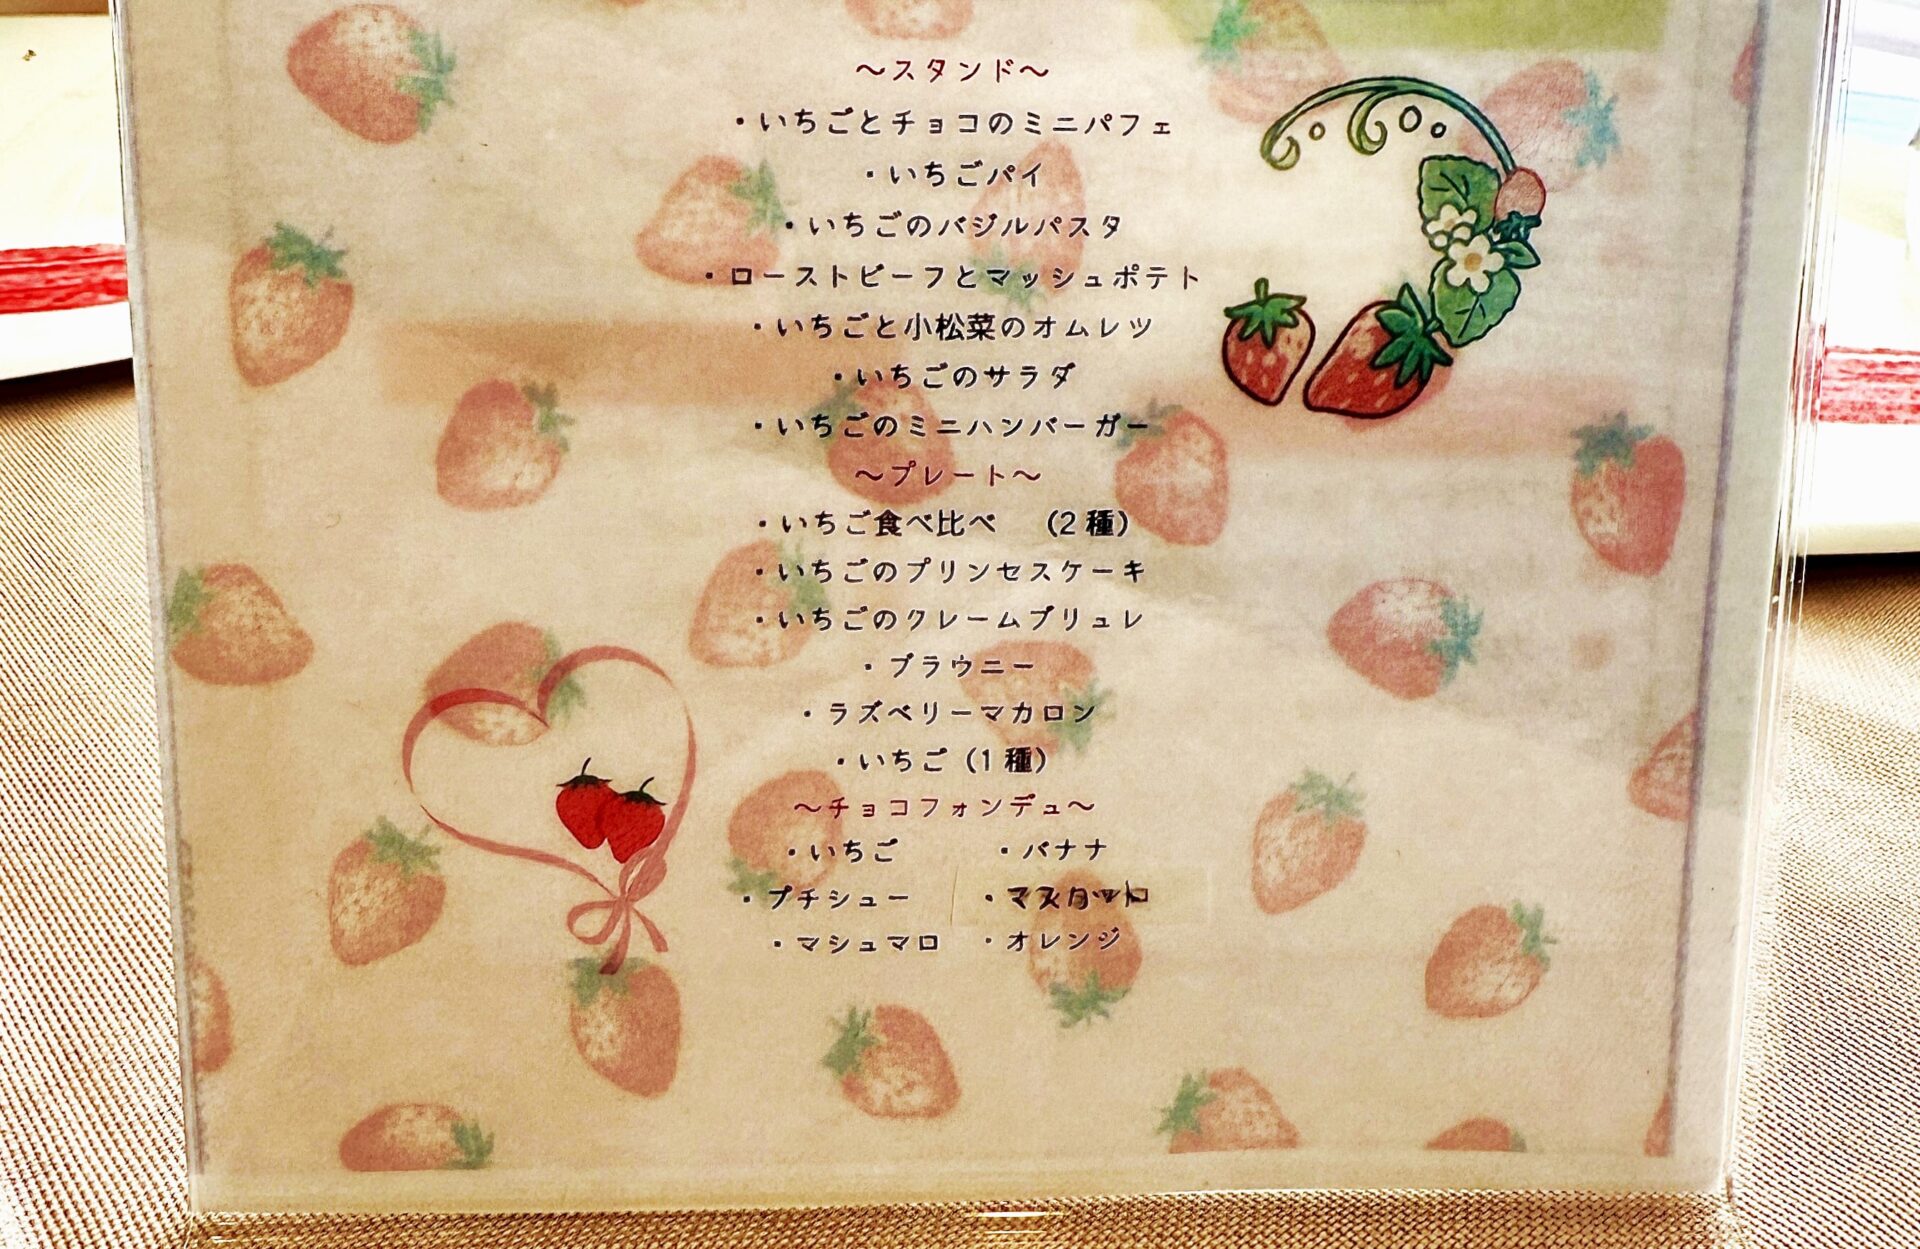 ～スタンド～
・いちごとチョコのミニパフェ
・いちごパイ
・いちごのバジルパスタ
・ローストビーフとマッシュポテト
・いちごと小松菜のオムレツ
・いちごのサラダ
・いちごのミニハンバーガー
～プレート～
・いちご食べ比べ　（2種）
・いちごのプリンセスケーキ
・いちごのクレームブリュレ
・ブラウニー
・ラズベリーマカロン
・いちご（1種）
～チョコフォンデュ～
・いちご　・バナナ
・プチシュー　・
・マシュマロ　・オレンジ